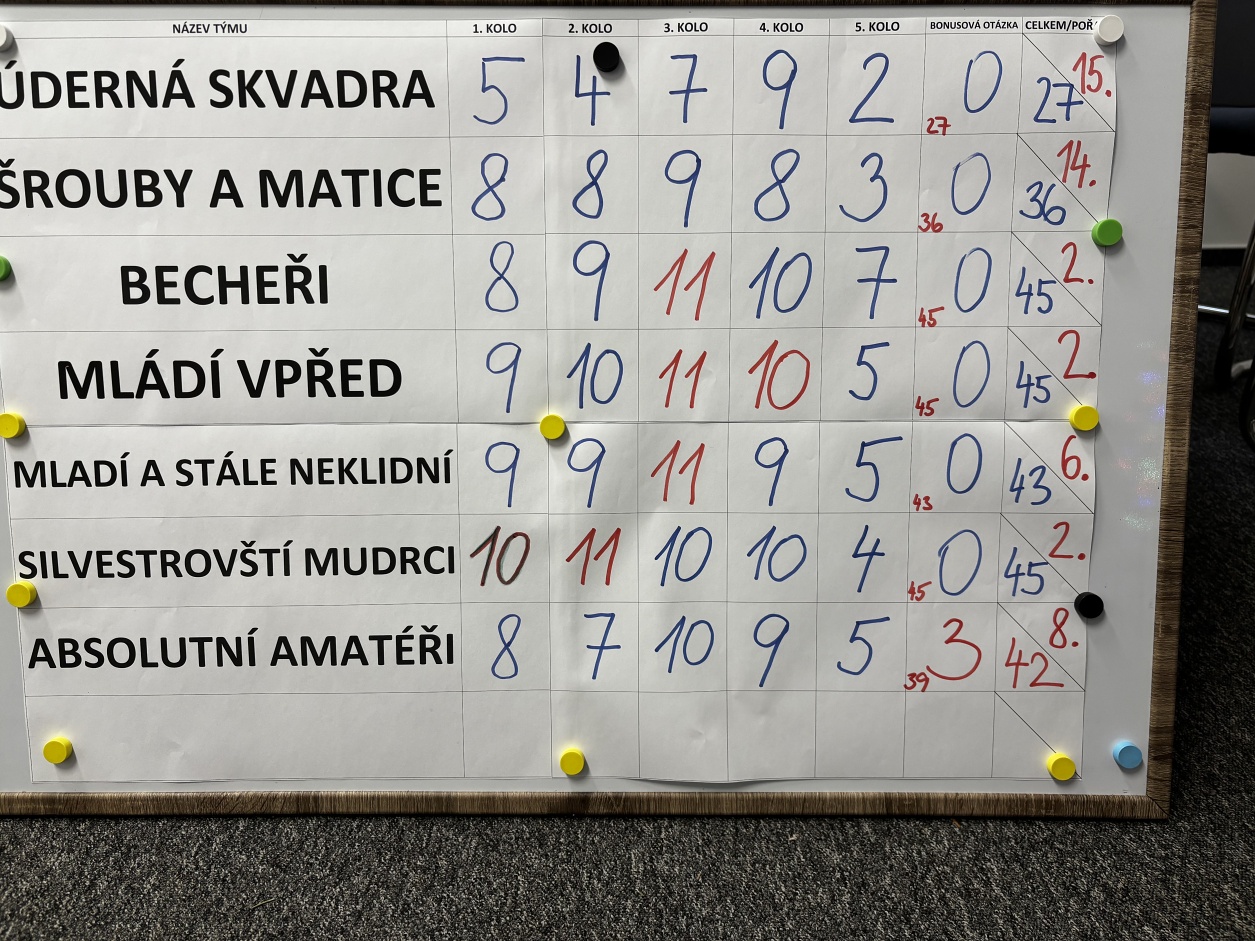 NÁZEV TÝMU 1. KOLO 2. KOLO 3. KOLO 4. KOLO 5. KOLO BONUSOVÁ OTÁZKA CELKEM/POŘ
ÚDERNÁ SKVADRA 5 4 7 9 2 27 0 27 15.
ŠROUBY A MATICE 8 8 9 8 3 36 0 36 14.
BECHEŘI 8 9 11 10 7 45 0 45 2.
MLÁDÍ VPŘED 9 10 11 10 5 45 0 45 2.
MLADÍ A STÁLE NEKLIDNÍ 9 9 11 9 5 43 0 43 6.
SILVESTROVŠTÍ MUDRCI 10 11 10 10 4 45 0 45 2.
ABSOLUTNÍ AMATÉŘI 8 7 10 9 5 39 3 42 8.